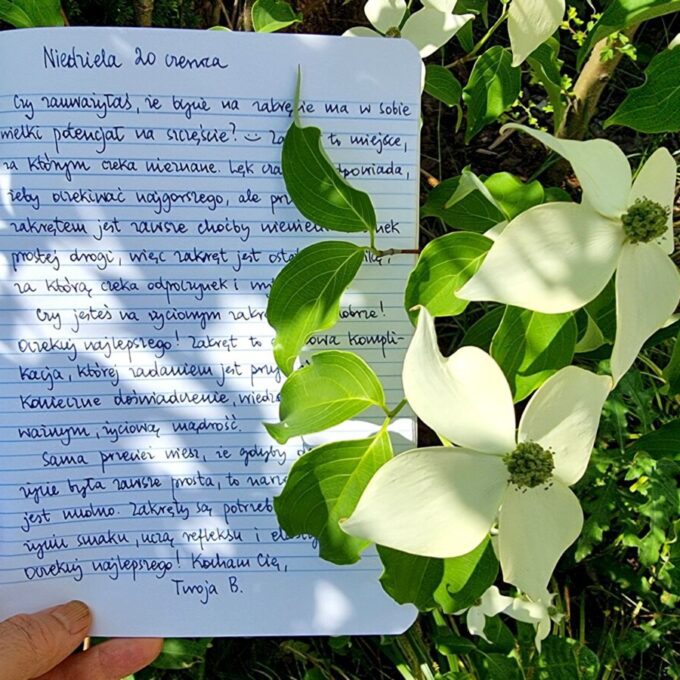 Niedziela 20 czerwca
Czy zauważyłaś, że bycie na zakręcie ma w sobie
wielki potencjał na szczęście? to miejsce,
za którym czeka nieznane. Lęk
żeby oczekiwać najgorszego, ale
zakrętem jest zawsze choćby
prostej drogi, więc zakręt jest
za którą czeka odpoczynek i
Czy jesteś na życiowym
Oczekuj najlepszego! Zakręt to kompli-
kacja, której zadaniem jest
konieczne doświadczenie,
ważnym, życiową mądrość.
Sama przecież wiesz, że gdyby
życie była zawsze prosta, to
jest nudno. Zakręty są
życiu smaku, uczą refleksu i
Oczekuj najlepszego! Kocham Cię,
Twoja B.